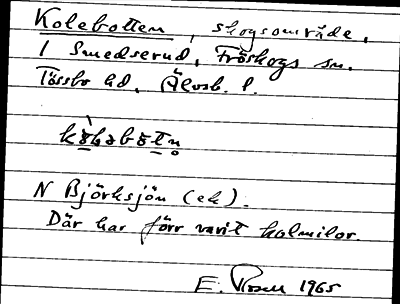 Kolebotten, skogsområde,
i Smedserud, Fröskogs sn.
Tössbo hd, Älvsb. l.
kòləbòtn̥
N Björksjön (ek).
Där har förr varit kolmilor.
E. Rosell 1965